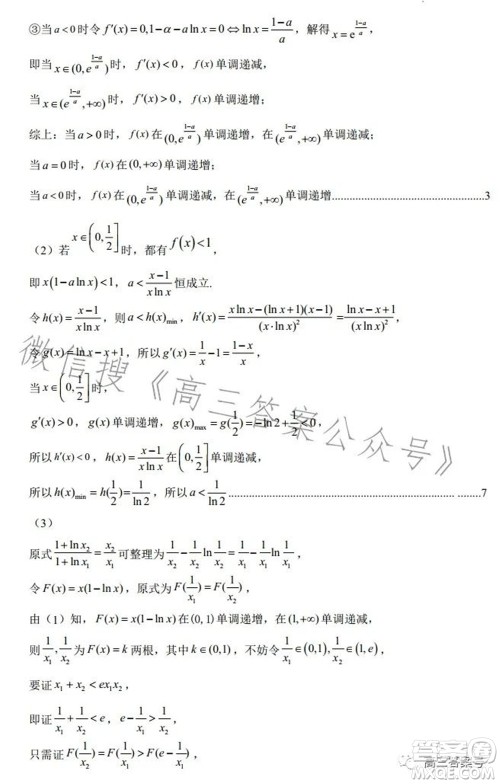 ③当 a<0 时令 f′(x)=0,1-α-a ln x=0⇔ln x=\frac{1-a}{a}，解得 x=e^{\frac{1-a}{a}}，
即当 x∈(0,e^{\frac{1-a}{a}}) 时，f′(x)<0，f(x) 单调递减，
当 x∈(e^{\frac{1-a}{a}},+∞) 时，f′(x)>0，f(x) 单调递增；
综上：当 a>0 时，f(x) 在 (0,e^{\frac{1-a}{a}}) 单调递增，在 (e^{\frac{1-a}{a}},+∞) 单调递减；
当 a=0 时，f(x) 在 (0,+∞) 单调递增；
当 a<0 时，f(x) 在 (0,e^{\frac{1-a}{a}}) 单调递减，在 (e^{\frac{1-a}{a}},+∞) 单调递增................................................3
（2）若 x∈(0,\frac{1}{2}] 时，都有 f(x)<1，
即 x(1-a ln x)<1，a<\frac{x-1}{x ln x} 恒成立.
令 h(x)=\frac{x-1}{x ln x}，则 a<h(x)_{min}，h′(x)=\frac{x ln x-(ln x+1)(x-1)}{(x·ln x)^2}=\frac{ln x-x+1}{(x ln x)^2}，
令 g(x)=ln x-x+1，所以 g′(x)=\frac{1}{x}-1=\frac{1-x}{x}，
当 x∈(0,\frac{1}{2}] 时，
g′(x)>0，g(x) 单调递增，g(x)_{max}=g(\frac{1}{2})=-ln 2+\frac{1}{2}<0，
所以 h′(x)<0，h(x)=\frac{x-1}{x ln x} 在 (0,\frac{1}{2}] 单调递减，
所以 h(x)_{min}=h(\frac{1}{2})=\frac{1}{ln 2}，所以 a<\frac{1}{ln 2}................................................7
（3）
原式 \frac{1+ln x_2}{1+ln x_1}=\frac{x_2}{x_1} 可整理为 \frac{1}{x_2}-\frac{1}{x_2}ln\frac{1}{x_2}=\frac{1}{x_1}-\frac{1}{x_1}ln\frac{1}{x_1}，
令 F(x)=x(1-ln x)，原式为 F(\frac{1}{x_1})=F(\frac{1}{x_2})，
由（1）知，F(x)=x(1-ln x) 在(0,1)单调递增，在(1,+∞)单调递减，
则 \frac{1}{x_1},\frac{1}{x_2} 为 F(x)=k 两根，其中 k∈(0,1)，不妨令 \frac{1}{x_1}∈(0,1),\frac{1}{x_2}∈(1,e)，
要证 x_1+x_2<ex_1x_2，
即证 \frac{1}{x_1}+\frac{1}{x_2}<e，e-\frac{1}{x_1}>\frac{1}{x_2}，
只需证 F(\frac{1}{x_2})=F(\frac{1}{x_1})>F(e-\frac{1}{x_1})，
微信搜《高三答案公众号》
高三答案号
答案圈
MXQE.COM